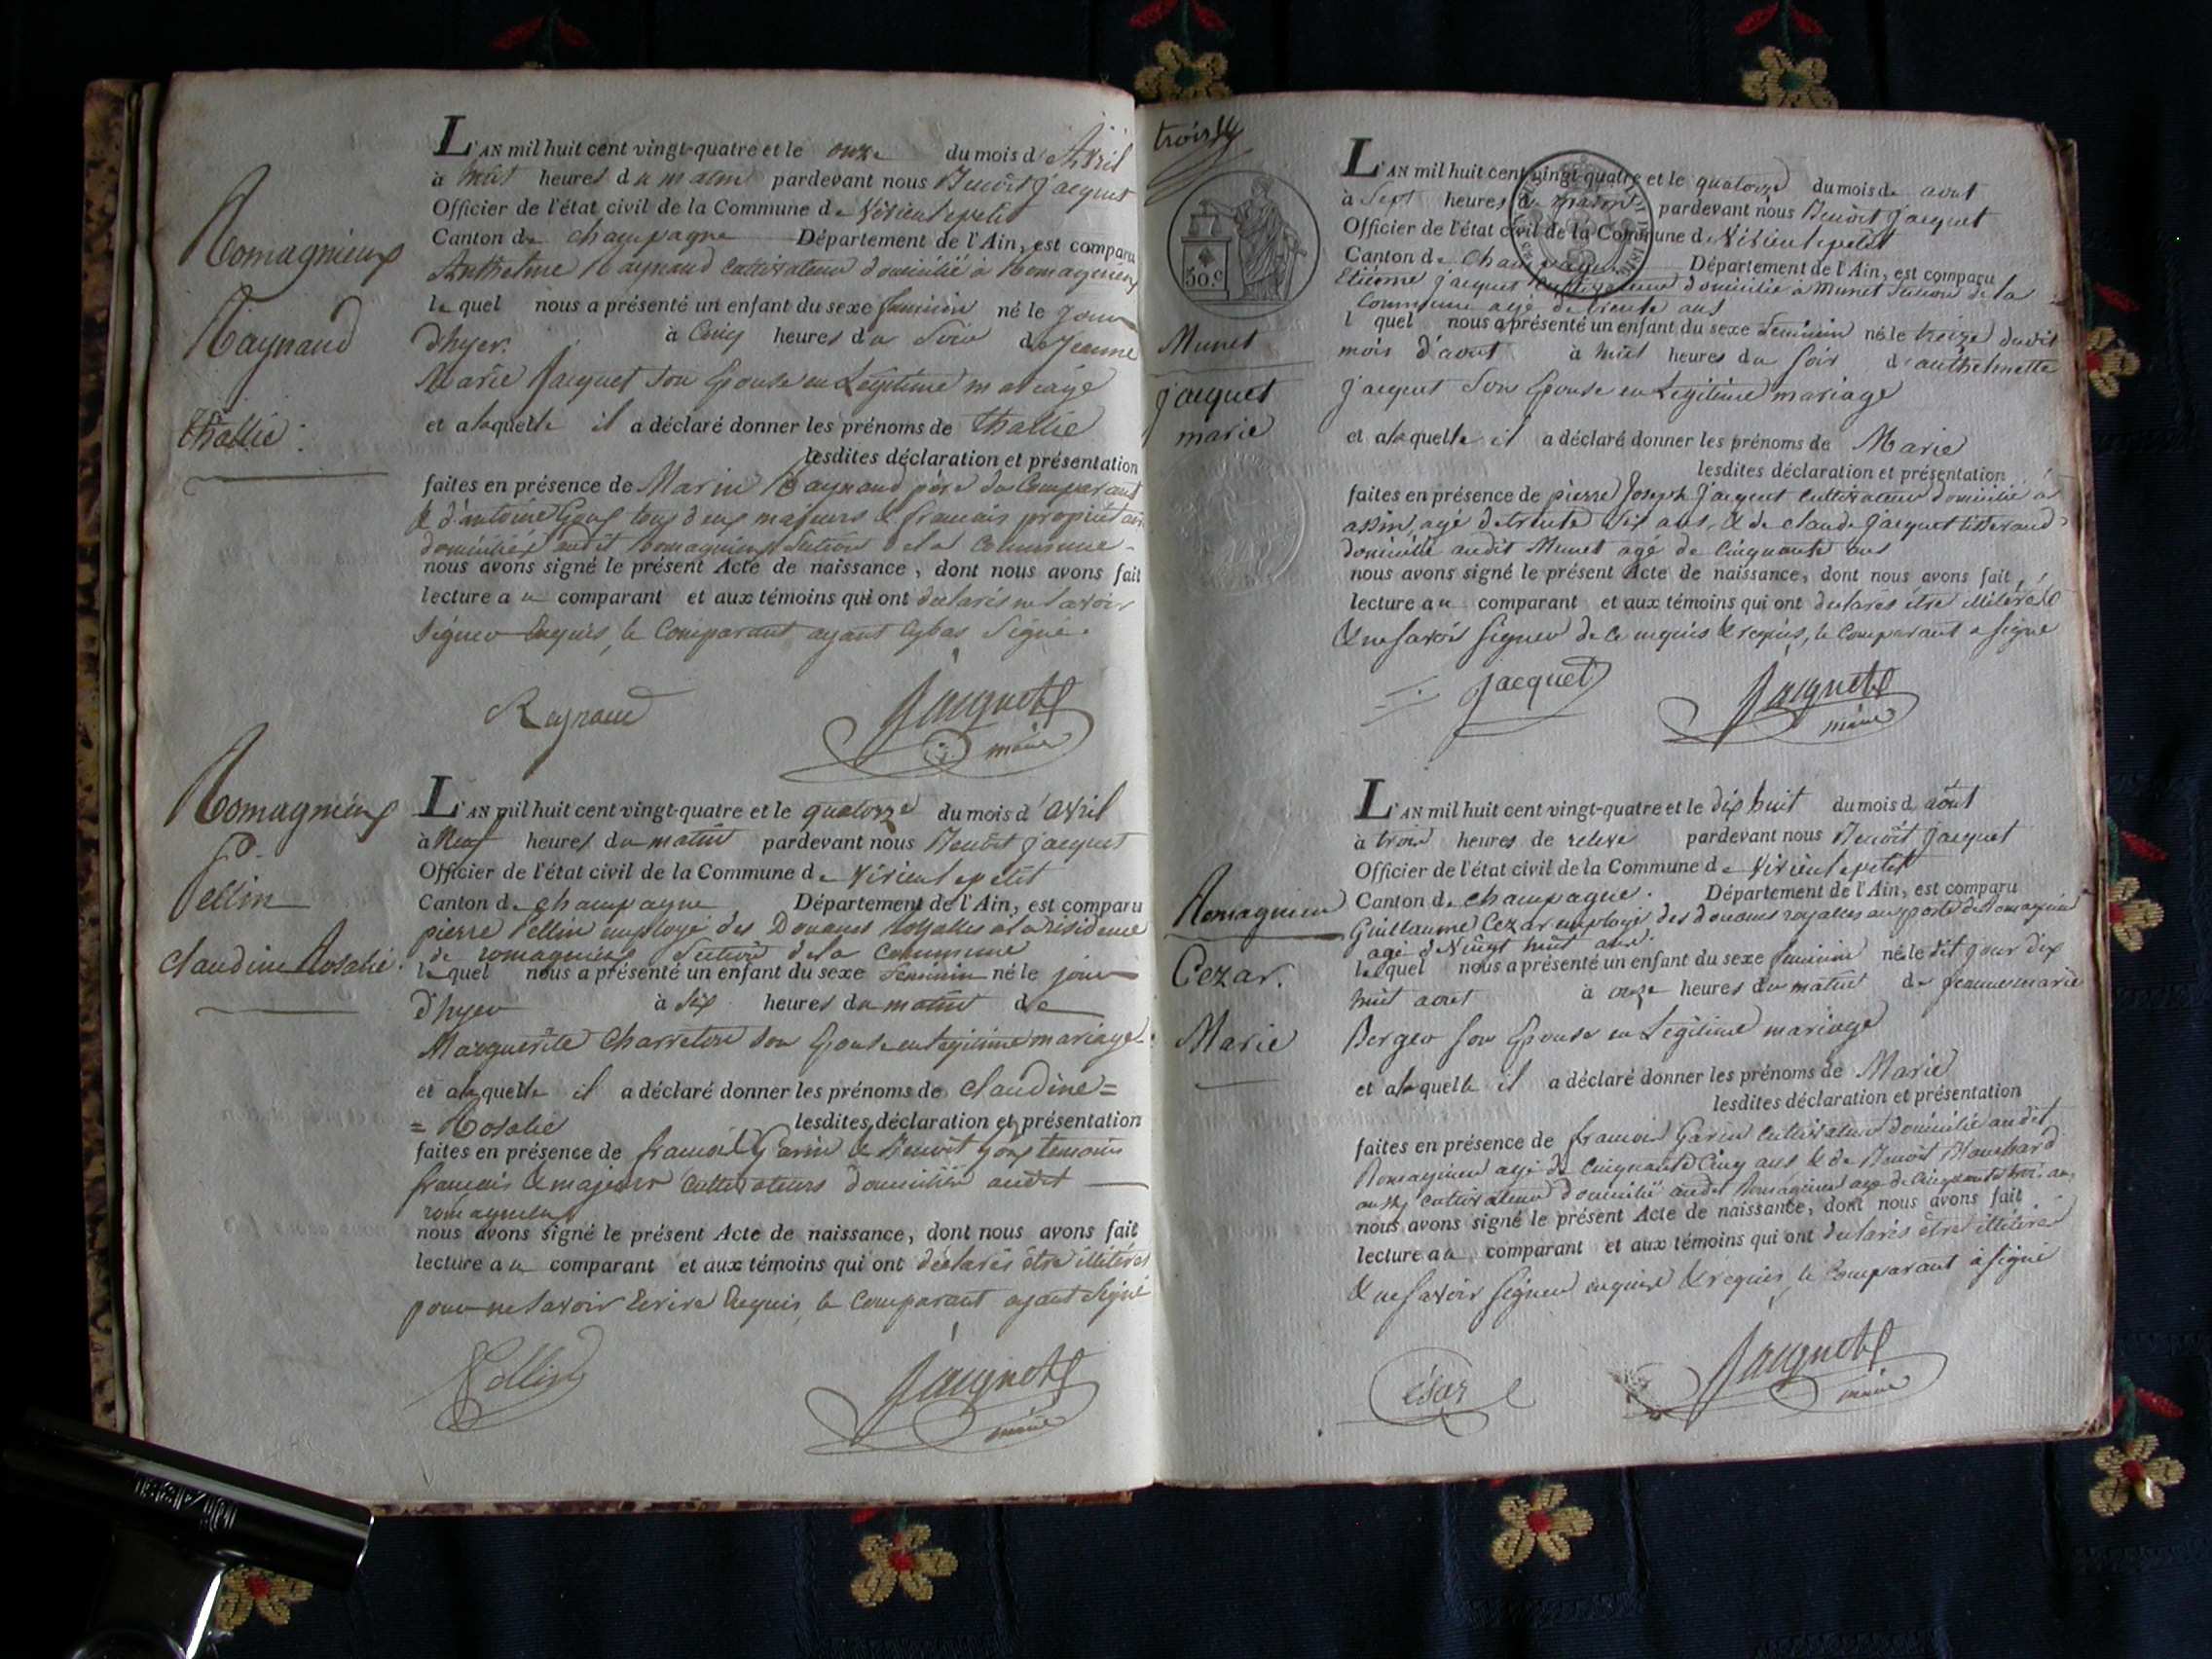 Romagnieux
Raynaud
Thallie
L'AN mil huit cent vingt-quatre et le onze du mois d'Avril
à huit heures du matin pardevant nous Benoît Jacquet
Officier de l'état civil de la Commune de Virieulepetit
Canton de Champagne Département de l'Ain, est comparu
Anthelme Raynaud cultivateur domicilié à Romagnieux
lequel nous a présenté un enfant du sexe feminin né le jour
d'hyer à cinq heures du Soir de Jeanne
Marie Jacquet son Epouse en Légitime mariage
et a laquelle il a déclaré donner les prénoms de Thallie
lesdites déclaration et présentation
faites en présence de Marin Raynaud père du Comparant
& d'antoine Goux tous deux majeurs & francais propriétaires
domiciliés audit Romagnieux Section de la Commune
nous avons signé le présent Acte de naissance, dont nous avons fait
lecture au comparant et aux témoins qui ont déclarés ne savoir
signer Enquis, le Comparant ayant Cybas Signé.
Raynaud Jacquet
maire
Romagnieux
Pellin
Claudine Rosalie.
L'AN mil huit cent vingt-quatre et le quatorze du mois d'avril
à Neuf heures du matin pardevant nous Benoît Jacquet
Officier de l'état civil de la Commune de Virieulepetit
Canton de champagne Département de l'Ain, est comparu
pierre Pellin employé des Douanes Royalles a la résidence
de romagnieux Section de la Commune
lequel nous a présenté un enfant du sexe feminin né le jour
d'hyer à six heures du matin de
Marguerite Charreton son Epouse en légitime mariage
et a laquelle il a déclaré donner les prénoms de Claudine=
= Rosalie lesdites déclaration et présentation
faites en présence de francois Garin & Benoît Goux temoins
francais & majeurs Cultivateurs domiciliés audit
romagnieux
nous avons signé le présent Acte de naissance, dont nous avons fait
lecture au comparant et aux témoins qui ont déclarés être illitérés
pour ne savoir Ecrire Enquis, le Comparant ayant signé
Pellin Jacquet
maire
trois
50.c
Munet
jacquet
marie
L'AN mil huit cent vingt-quatre et le quatorze du mois de aout
à Sept heures du matin pardevant nous Benoît Jacquet
Officier de l'état civil de la Commune de Virieulepetit
Canton de Champagne Département de l'Ain, est comparu
Etienne jacquet cultivateur domicilié à Munet Section de la
Commune agé de trente ans
lequel nous a présenté un enfant du sexe feminin né le treize dudit
mois d'aout à huit heures du soir d'anthelmette
jacquet Son Epouse en Légitime mariage
et a laquelle il a déclaré donner les prénoms de Marie
lesdites déclaration et présentation
faites en présence de pierre Joseph Jacquet cultivateur domicilié à
assin, agé de trente six ans, & de claude Jacquet tisserand
domicilié audit Munet agé de Cinquante ans
nous avons signé le présent Acte de naissance, dont nous avons fait
lecture au comparant et aux témoins qui ont déclarés être illitérés
& ne savoir signer de ce enquis & requis, le Comparant a signé
jacquet Jacquet
maire
Romagnieu
Cezar.
Marie
L'AN mil huit cent vingt-quatre et le dix huit du mois d'août
à trois heures de relevé pardevant nous Benoît Jacquet
Officier de l'état civil de la Commune de Virieulepetit
Canton de champagne. Département de l'Ain, est comparu
Guillaume Cezar employé des douanes royalles au poste de Romagnieu
agé de Vingt huit ans.
lequel nous a présenté un enfant du sexe feminin né le dit jour dix
huit aout à onze heures du matin de jeanne marie
Berger son Epouse en Légitime mariage
et a laquelle il a déclaré donner les prénoms de Marie
lesdites déclaration et présentation
faites en présence de francois Garin cultivateur domicilié audit
Romagnieu agé de Cinquante Cinq ans & de Benoît Blanchard
aussy cultivateur domicilié audit Romagnieu agé de Cinquante trois ans
nous avons signé le présent Acte de naissance, dont nous avons fait
lecture au comparant et aux témoins qui ont declarés être illitérés
& ne savoir signer enquis & requis, le Comparant a signé
César Jacquet
maire